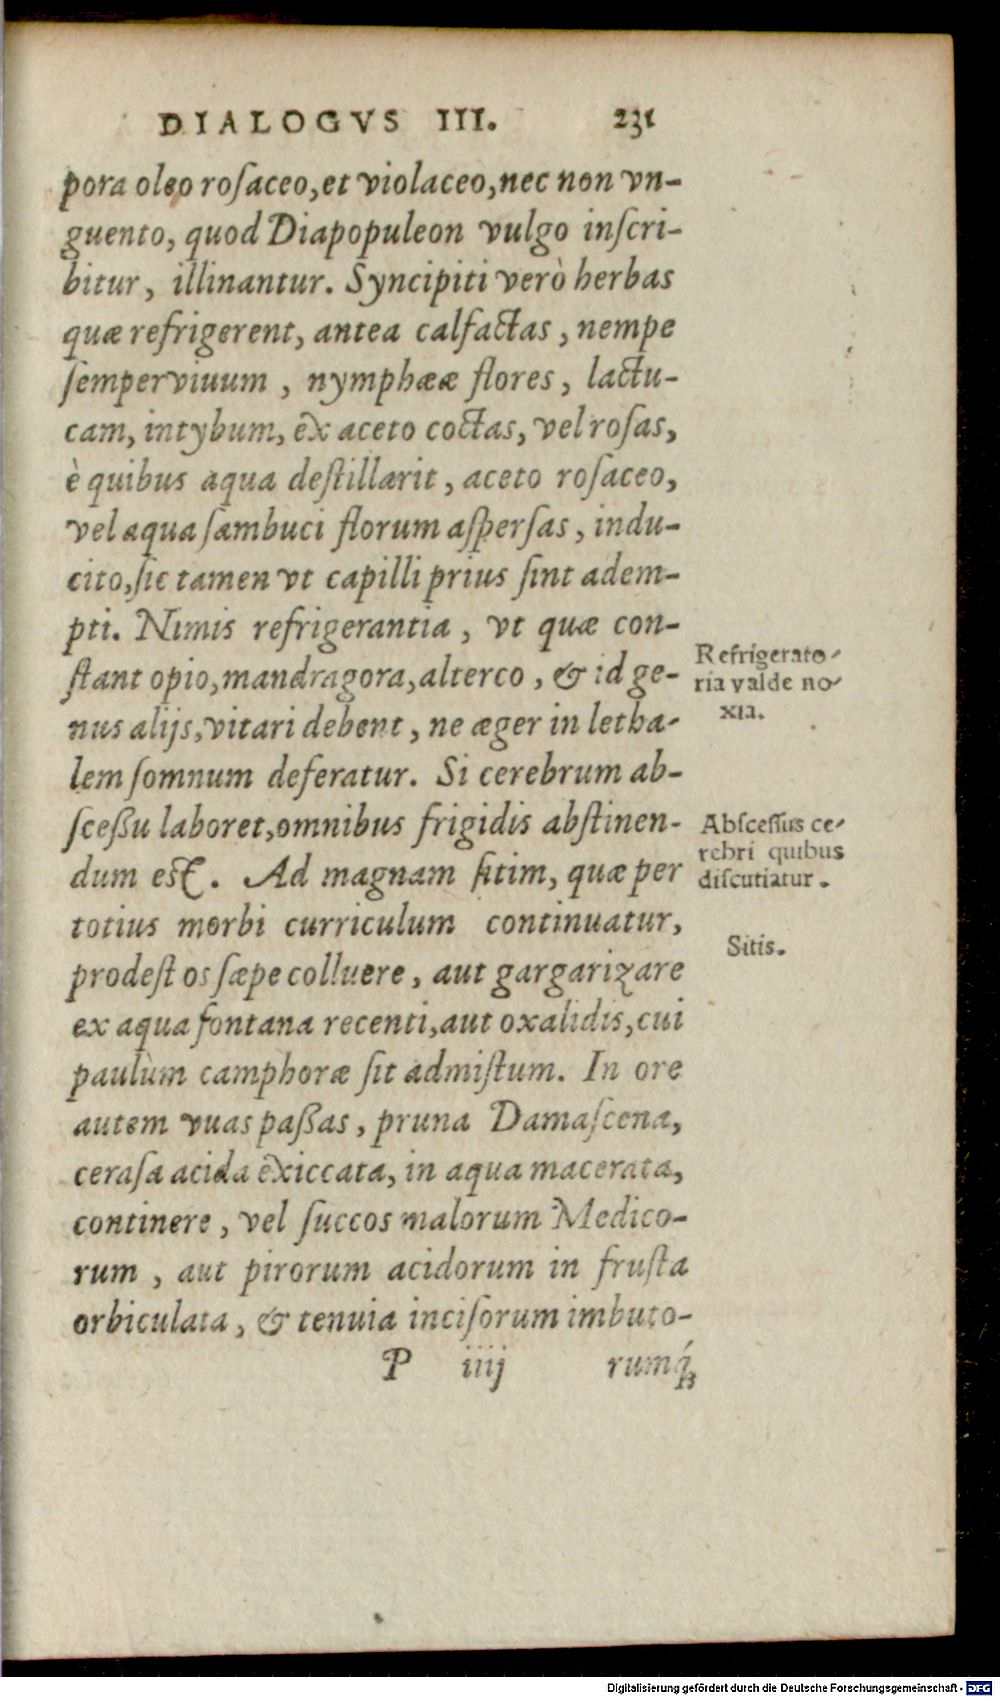 DIALOGVS III. 231
pora oleo roſaceo, et violaceo, nec non vn-
guento, quod Diapopuleon vulgo inſcri-
bitur, illinantur. Syncipiti verò herbas
quæ refrigerent, antea calfactas, nempe
ſempervivum, nymphææ flores, lactu-
cam, intybum, ex aceto coctas, vel roſas,
è quibus aqua deſtillarit, aceto roſaceo,
vel aqua ſambuci florum aſperſas, indu-
cito, ſic tamen vt capilli prius ſint adem-
pti. Nimis refrigerantia, vt quæ con-
ſtant opio, mandragora, alterco, & id ge-
nus alijs, vitari debent, ne æger in letha-
lem ſomnum deferatur. Si cerebrum ab-
ſceßu laboret, omnibus frigidis abſtinen-
dum eſt. Ad magnam ſitim, quæ per
totius morbi curriculum continuatur,
prodeſt os ſæpe colluere, aut gargarizare
ex aqua fontana recenti, aut oxalidis, cui
paulùm camphoræ ſit admiſtum. In ore
autem vuas paßas, pruna Damaſcena,
ceraſa acida exiccata, in aqua macerata,
continere, vel ſuccos malorum Medico-
rum, aut pirorum acidorum in fruſta
orbiculata, & tenuia inciſorum imbuto-
P iiij rumq́;
Refrigerato-
ria valde no-
xia.
Abſceſſus ce-
rebri quibus
diſcutiatur.
Sitis.
Digitalisierung gefördert durch die Deutsche Forschungsgemeinschaft - DFG